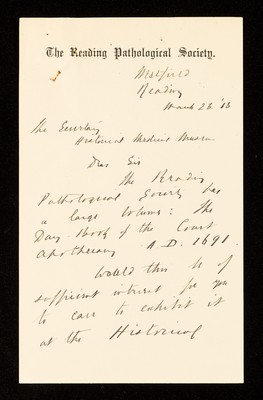 The Reading Pathological Society.
Melfield
Reading
March 28 '13
The Secretary
Historical Medical Museum
Dear Sir
The Reading
Pathological Society has
a large volume: The
Day Book of the Court
Apothecary A.D. 1691.
Would this be of
sufficient interest for you
to care to exhibit it
at the Historical